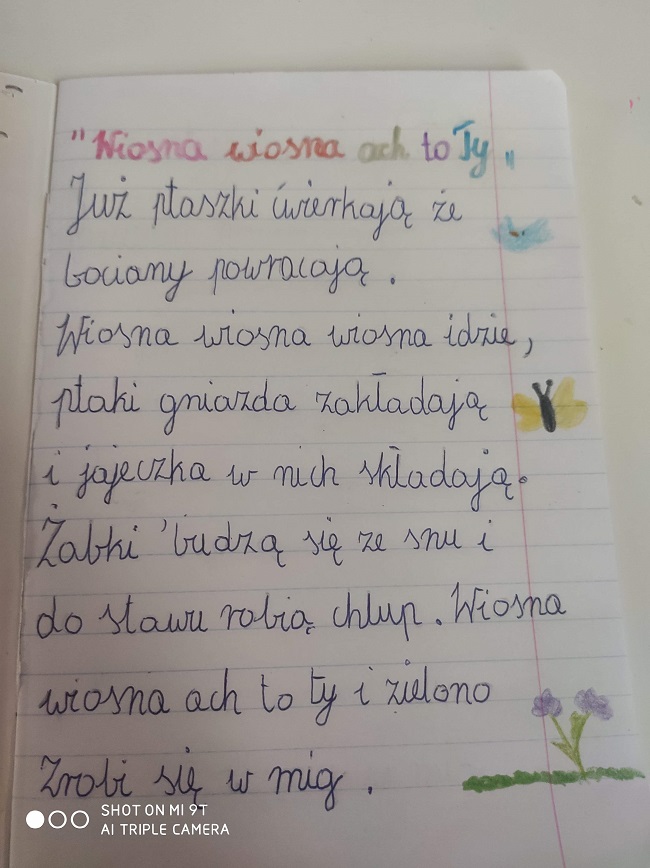 "Wiosna wiosna ach to Ty "
Już ptaszki ćwierkają że
bociany powracają .
Wiosna wiosna wiosna idzie,
ptaki gniazda zakładają
i jajeczka w nich składają.
Żabki budzą się ze snu i
do stawu robią chlup. Wiosna
wiosna ach to ty i zielono
zrobi się w mig .
SHOT ON MI 9T
AI TRIPLE CAMERA